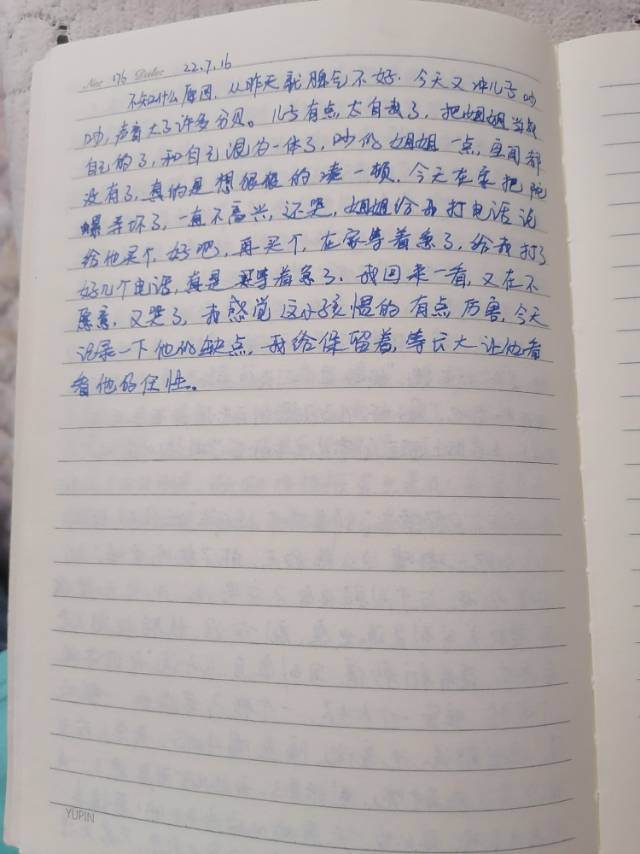 No: 76 Date: 22.7.16
不知什么原因，从昨天就脾气不好，今天又冲儿子吵
吵，声音大了许多分贝。儿子有点太自我了，把姐姐当成
自己的了，和自己混为一体了，吵他姐姐一点，空间都
没有了，真的是想狠狠的凑一顿，今天在家把陀
螺弄坏了，一直不高兴，还哭，姐姐给我打电话说
给他买个，好吧，再买个，在家等着急了，给我打了
好几个电话，真是等着急了。我回来一看，又在不
愿意，又哭了，我感觉这小孩惯的有点厉害，今天
记录一下他的缺点，我给保留着，等长大让他看
看他的任性。
YUPIN